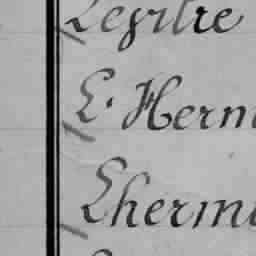 Lepitre
L. Herm
Lhermi